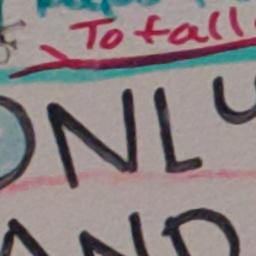 To fall
ONLY
AND